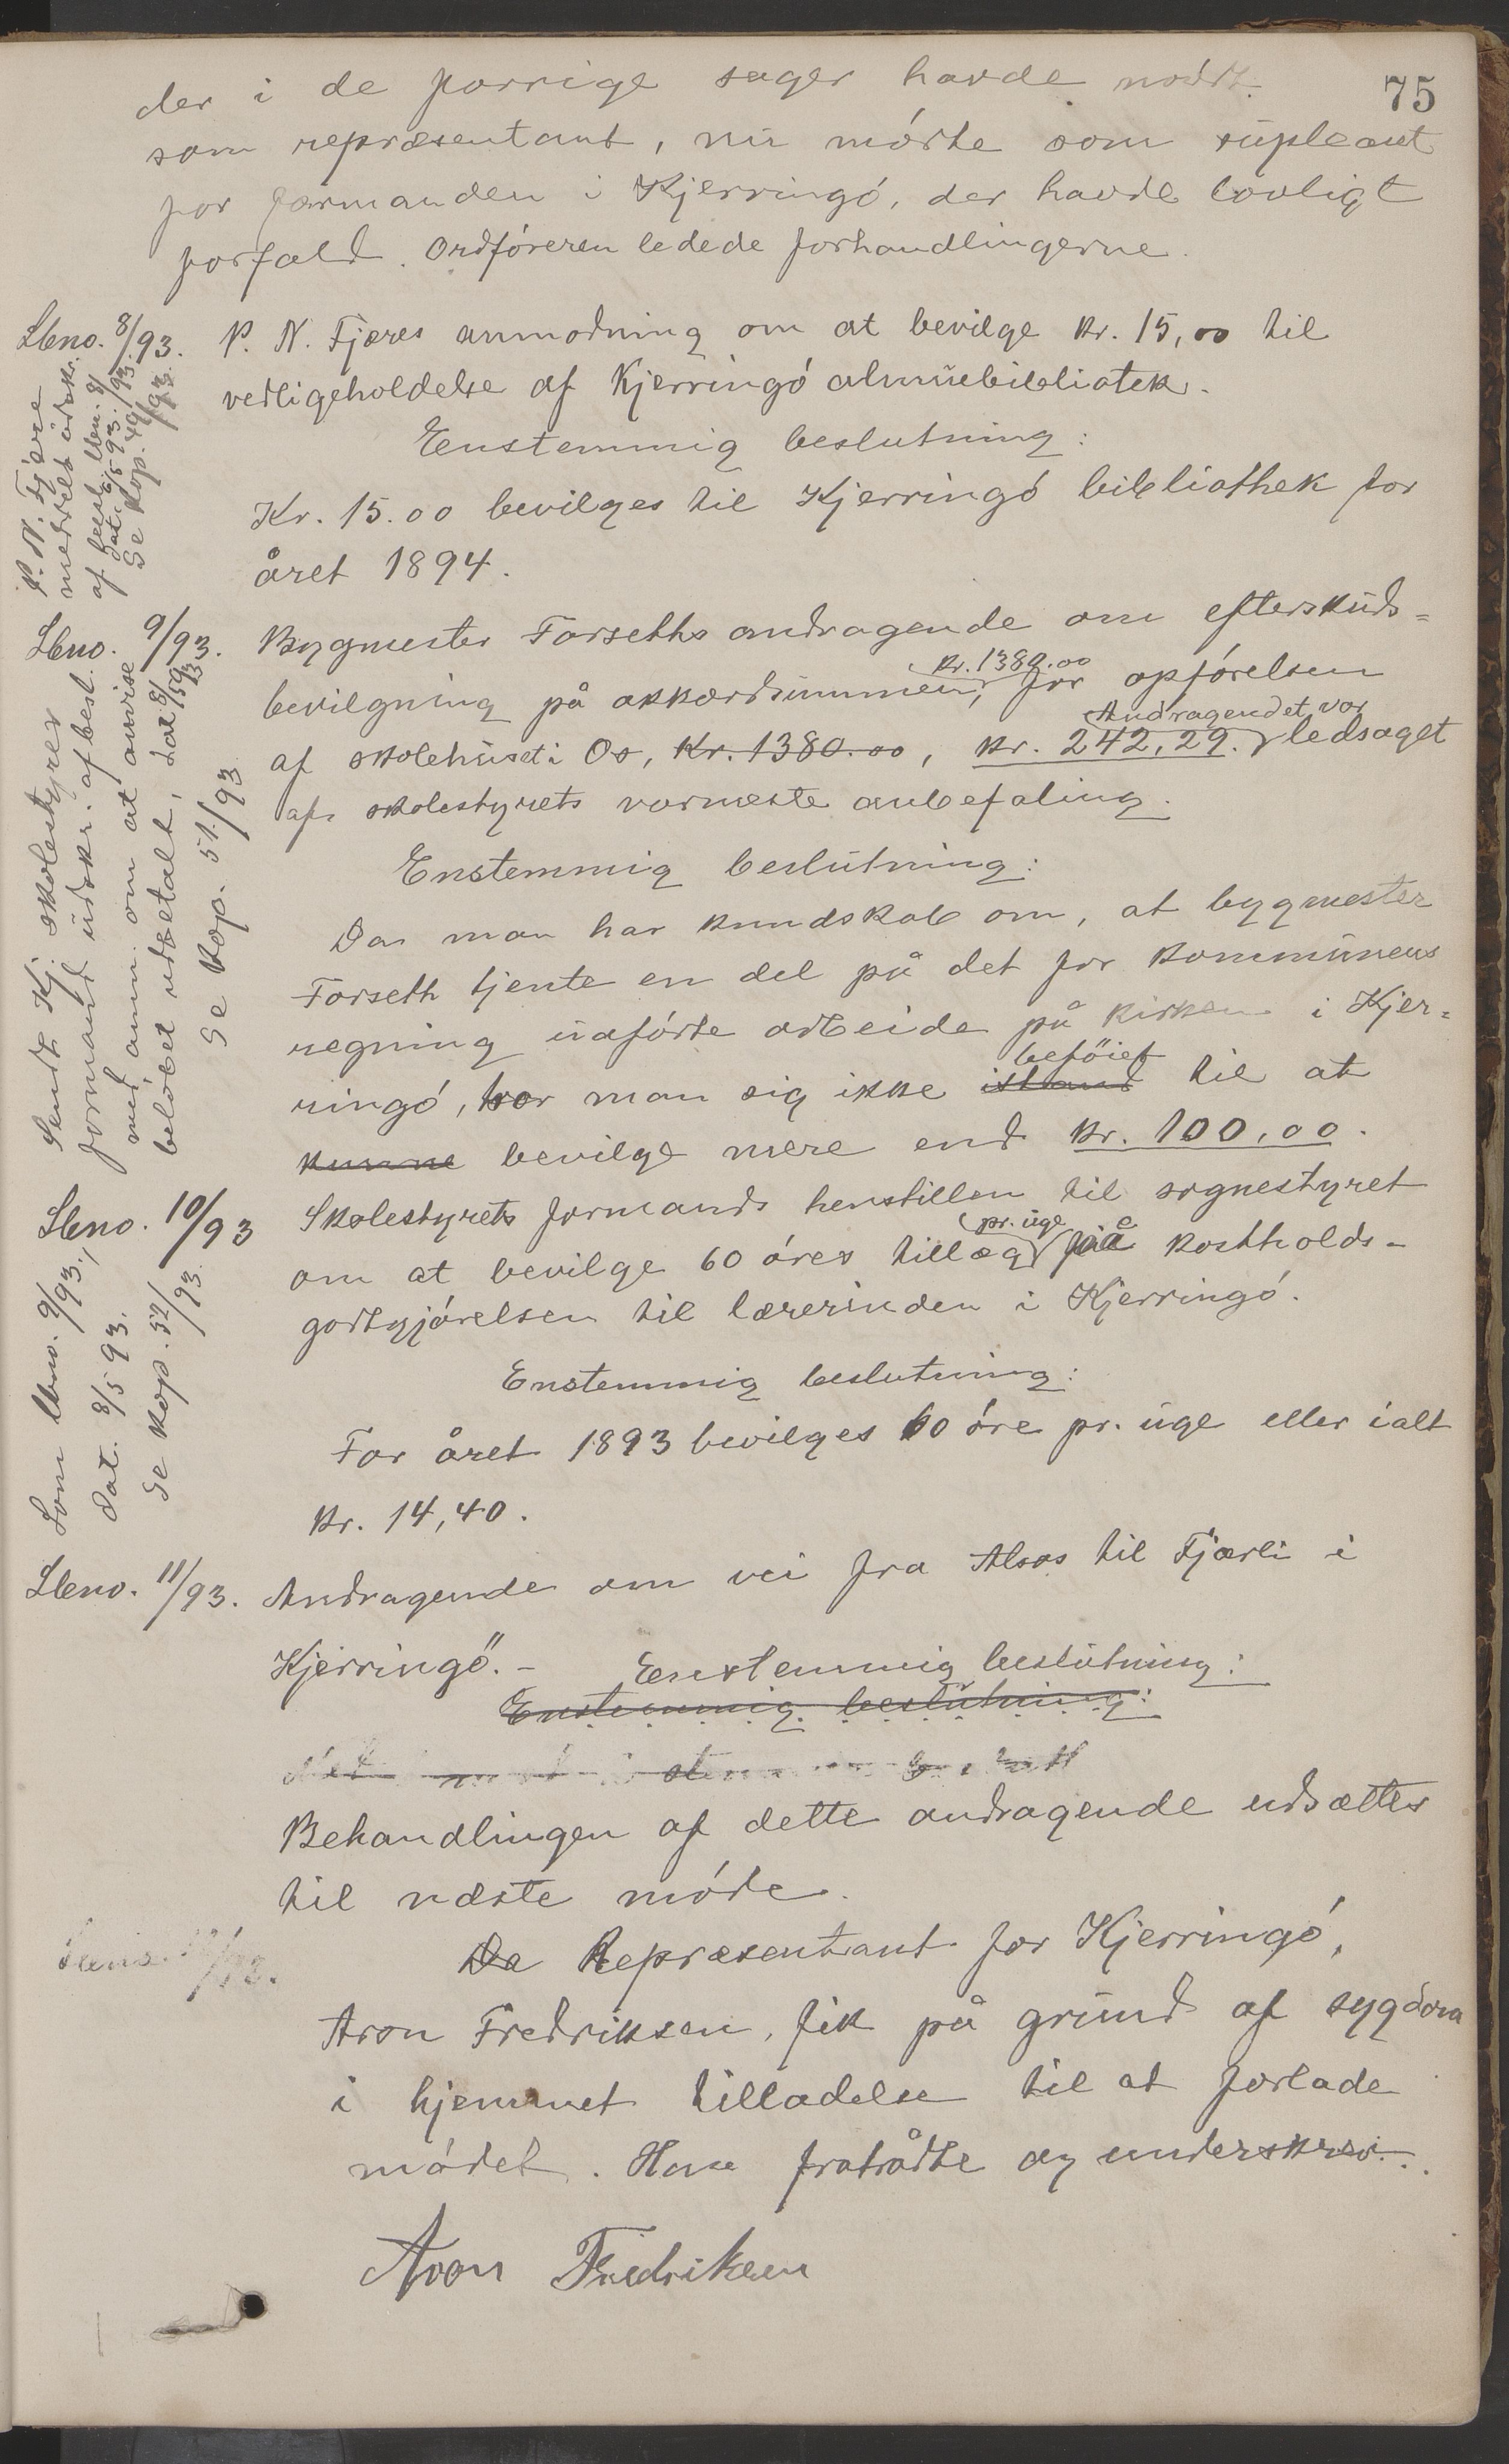 75
der i de forrige sager havde mødt
som repræsentant, nu mødte som supleant
for formanden i Kjerringø, der havde lovligt
forfald. Ordføreren ledede forhandlingerne.
Lbno. 8/93.
P. N. Fjæres anmodning om at bevilge kr. 15,00 til
vedligeholdelse af Kjerringø almuebibliotek.
P. N. Fjære
meddelt udskr.
af besl. lbn. 8/93.
dat. 6/5 93.
Se Kop. 49/93.
Eenstemmig beslutning:
Kr. 15.00 bevilges til Kjerringø bibliothek for
året 1894.
Lbno. 9/93.
Bygmester Forseths andragende om efterskuds-
bevilgning på akkordsummen, kr. 1380.00 for opførelsen
af skolehuset i Os, kr. 1380.00, kr. 242,29. Andragendet var ledsaget
af skolestyrets varmeste anbefaling.
Sendt Kj. skolestyres
formand udskr. af besl.
med anm. om at anvise
beløbet udbetalt, dat 8/5 93
Se Kop. 51/93
Enstemmig beslutning:
Da man har kundskab om, at bygmester
Forseth tjente en del på det for kommunens
regning udførte arbeide på kirken i Kjer-
ringø, tror man sig ikke istand beføiet til at
kunne bevilge mere end kr. 100,00.
Lbno. 10/93
Skolestyrets formands henstillen til sognestyret
om at bevilge 60 øres tillæg pr. uge på kostholds-
godtgjørelsen til lærerinden i Kjerringø.
Som lbno. 9/93,
dat. 8/5 93.
Se Kop. 52/93
Enstemmig beslutning:
For året 1893 bevilges 60 øre pr. uge eller ialt
kr. 14,40.
Lbno. 11/93.
Andragende om vei fra Alsos til Fjærli i
Kjerringø. - Enstemmig beslutning:
Enstemmig beslutning:
Behandlingen af dette andragende udsættes
til næste møde.
De Repræsentant for Kjerringø,
Aron Fredriksen, fik på grund af sygdom
i hjemmet tilladelse til at forlade
mødet. Han fratrådte og underskrev.
Aron Fredriksen